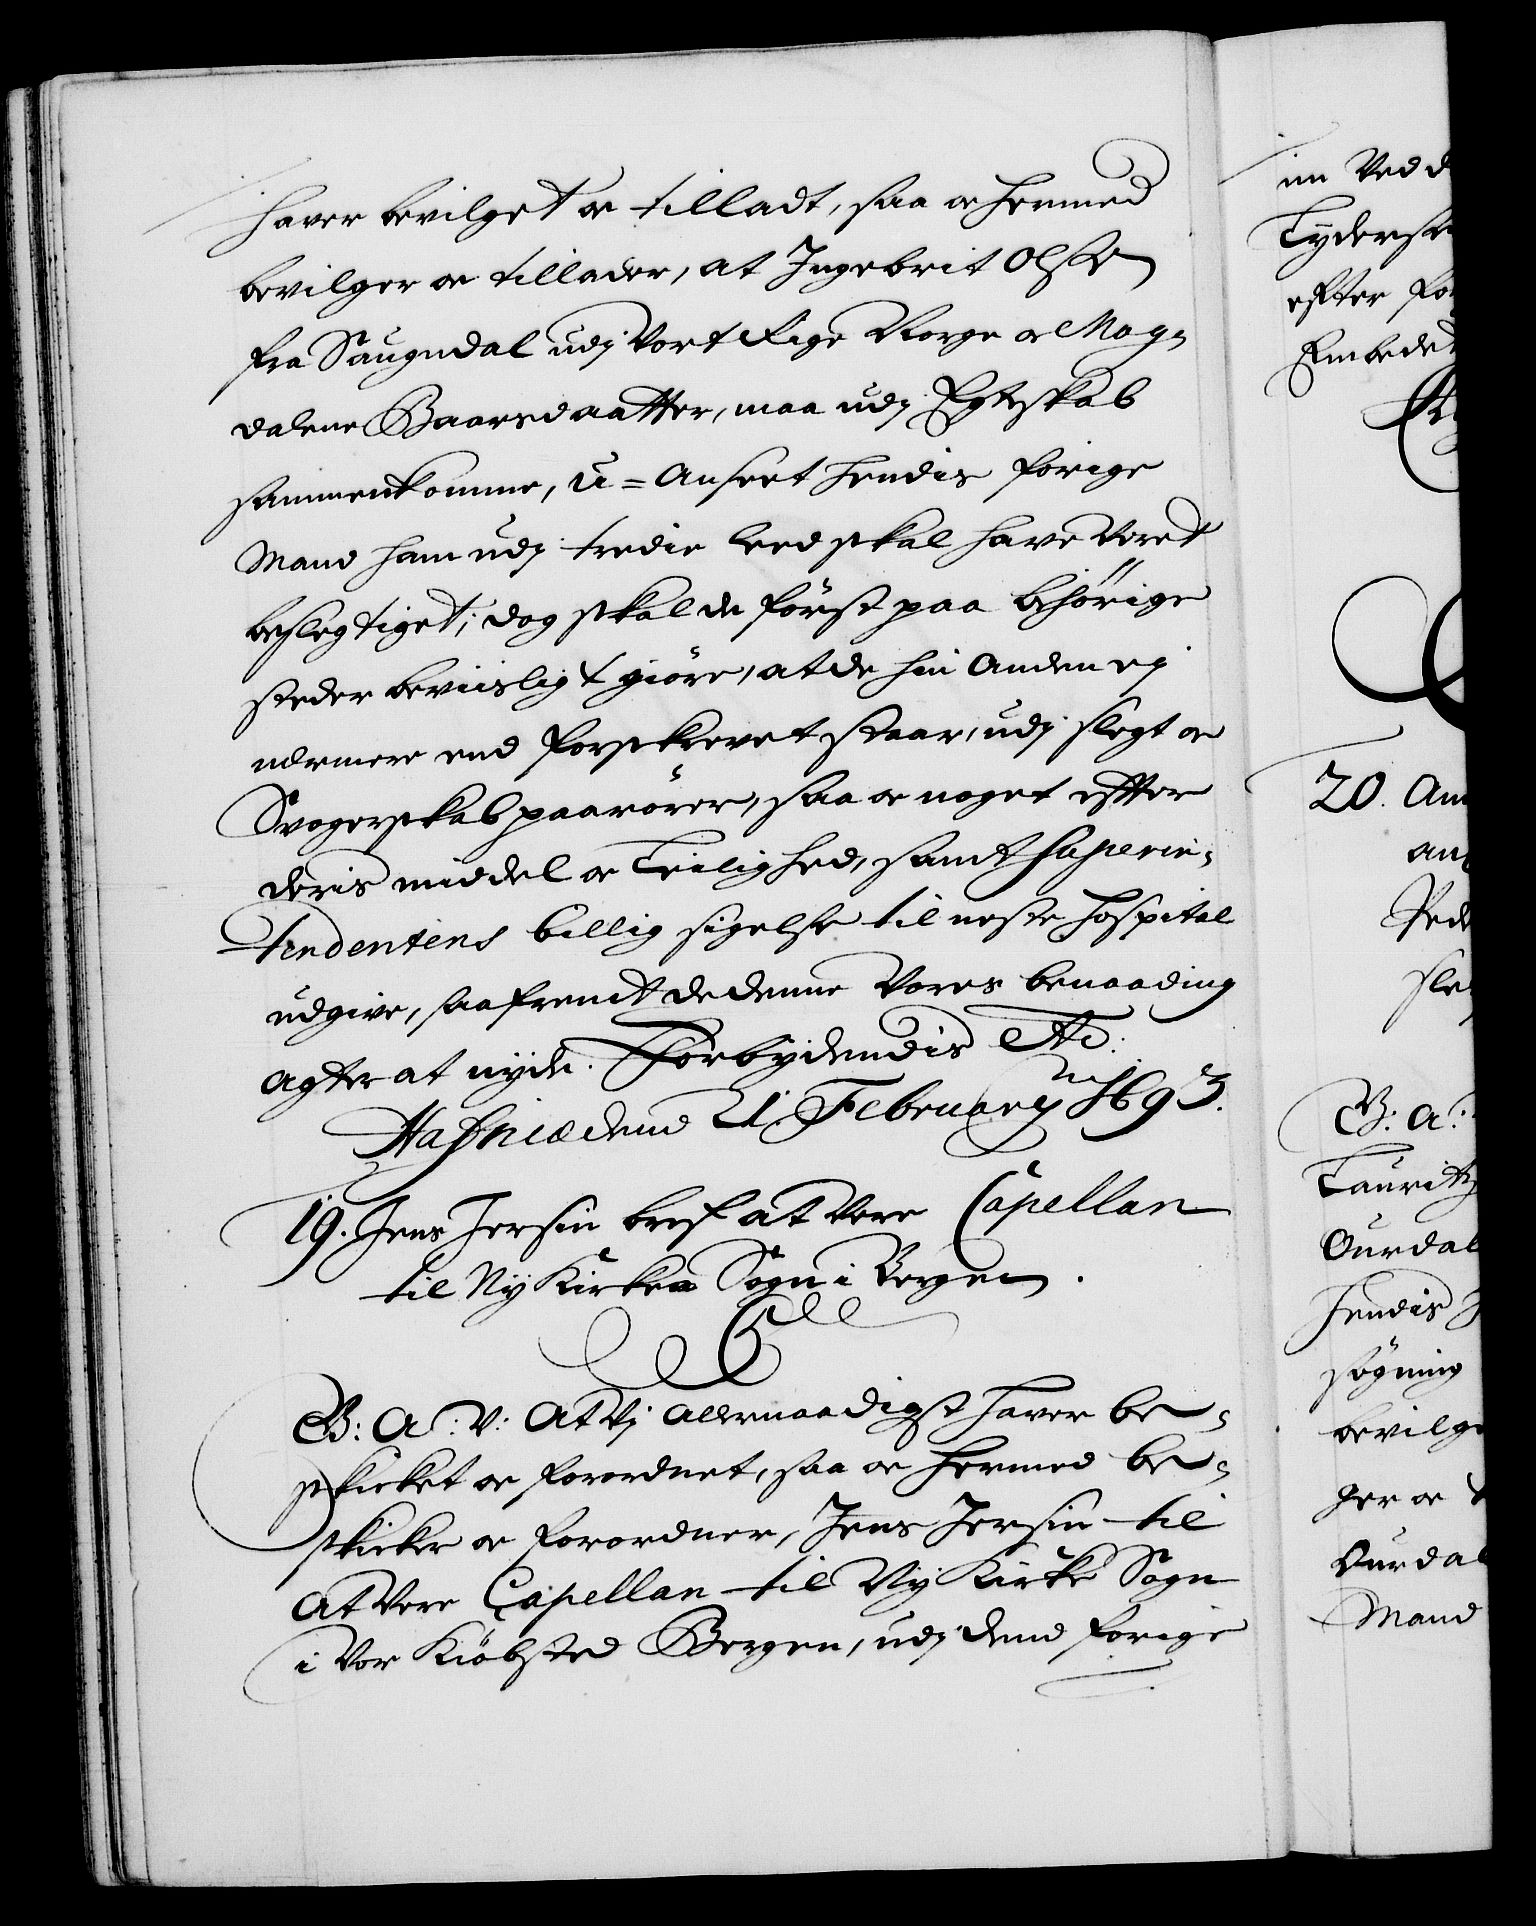 hafver bevilget oc tilladt, saa oc hermed
bevilger oc tillader, at Ingebrit Olsen
fra Saugndal udj Vort Rige Norge oc Mag-
dalene Baarsdaatter, maa udj Egteskab
sammenkomme, U=anseet hendis forige
Mand ham udj tredie Leed skal have veret
beslegtiget; dog skal de först paa behörige
steder beviisligt giöre, at de hin anden ej
nermere end forskrevet staar, udj slegt oc
Svogerskab paarörer, saa oc noget effter
deris middel oc Leilighed, samt Superin-
tendentens billig sigelse til neste Hospital
udgive, saafremt de denne Vores benaading
agter at nyde. Forbydendis Etc:
Hafniæ dend 21. February 1693.
19. Jens Jersin bref at vere Capellan
til Ny Kirkes Sogn i Bergen.
G: A: V: At Vj allernaadigst hafver be-
skicket oc forordnet, saa oc hermed be-
skicker oc forordner, Jens Jersin til
at vere Capellan til Ny Kirke Sogn
i Vor Kiöbsted Bergen, udj dend forige
im Ved d
Tyderse
effter for
Embedet
20. An
an
Pede
sle
G: A:
Lauritz
Ourdal
hendis
søgning
bevilge
ger oc t
Ourdal
Mand